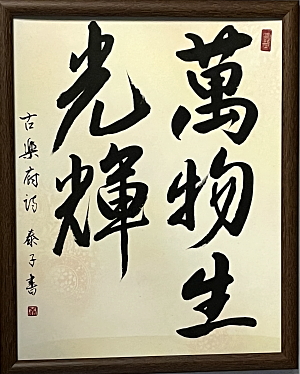 萬物生
光輝
古樂府詩 泰子書